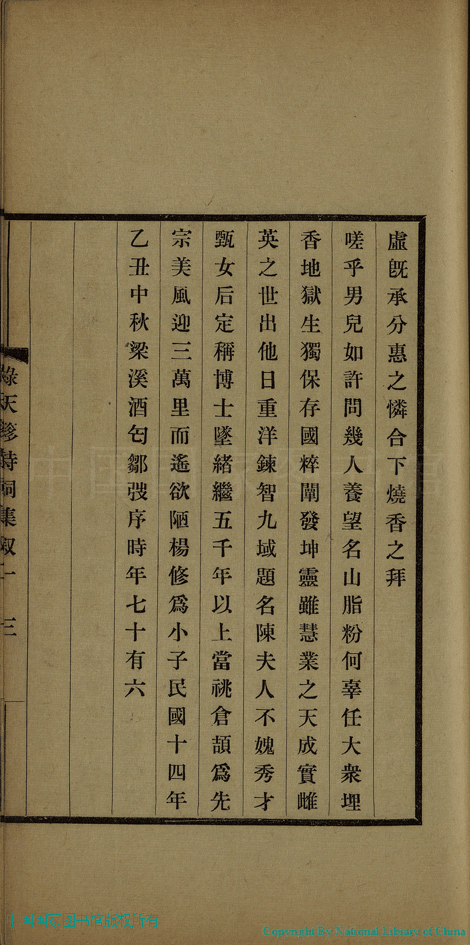 虛旣承分惠之憐合下燒香之拜
嗟乎男兒如許問幾人養望名山脂粉何辜任大衆埋
香地獄生獨保存國粹闡發坤靈雖慧業之天成實雌
英之世出他日重洋鍊智九域題名陳夫人不媿秀才
甄女后定稱博士墜緒繼五千年以上當祧倉頡爲先
宗美風迎三萬里而遙欲陋楊修爲小子民國十四年
乙丑中秋梁溪酒丐鄒弢序時年七十有六
綠天簃詩詞集敍一 三
中国国家图书馆版权所有
Copyright By National Library of China